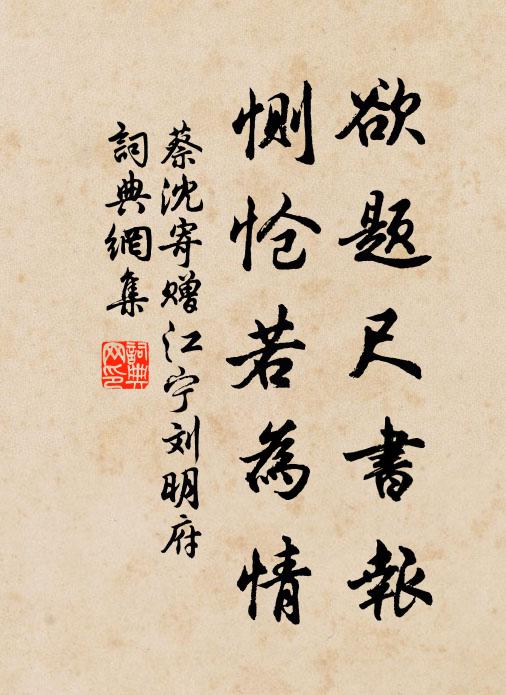 欲题尺書報
恻怆若為情
蔡沈寄赠江宁刘明府
詞典網集
詞典網印